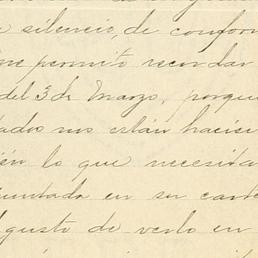 silencio, de confor
me permito recordar
del 3 de Marzo, porque
tados nos están hacien
ién lo que necesita
untada en su carta
gusto de verlo en